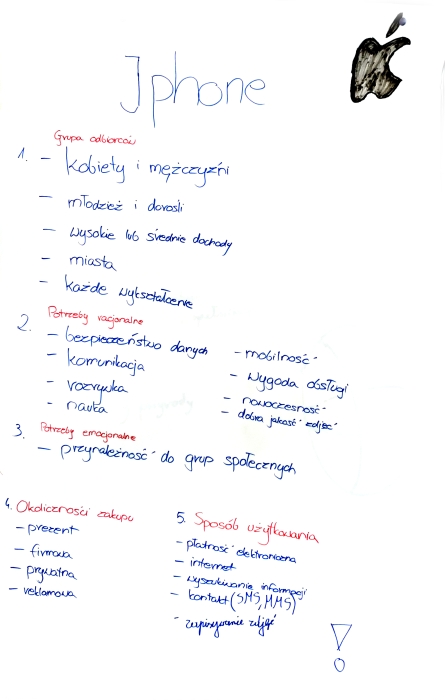 Iphone
Grupa odbiorców
1. - kobiety i mężczyźni
- młodzież i dorośli
- wysokie lub średnie dochody
- miasta
- każde wykształcenie
2. Potrzeby racjonalne
- bezpieczeństwo danych
- komunikacja
- rozrywka
- nauka
- mobilność
- wygoda obsługi
- nowoczesność
- dobra jakość zdjęć
3. Potrzeby emocjonalne
- przynależność do grup społecznych
4. Okoliczności zakupu
- prezent
- firmowa
- prywatna
- reklamowa
5. Sposób użytkowania
- płatność elektroniczna
- internet
- wyszukiwanie informacji
- kontakt (SMS, MMS)
- zdjęć
!